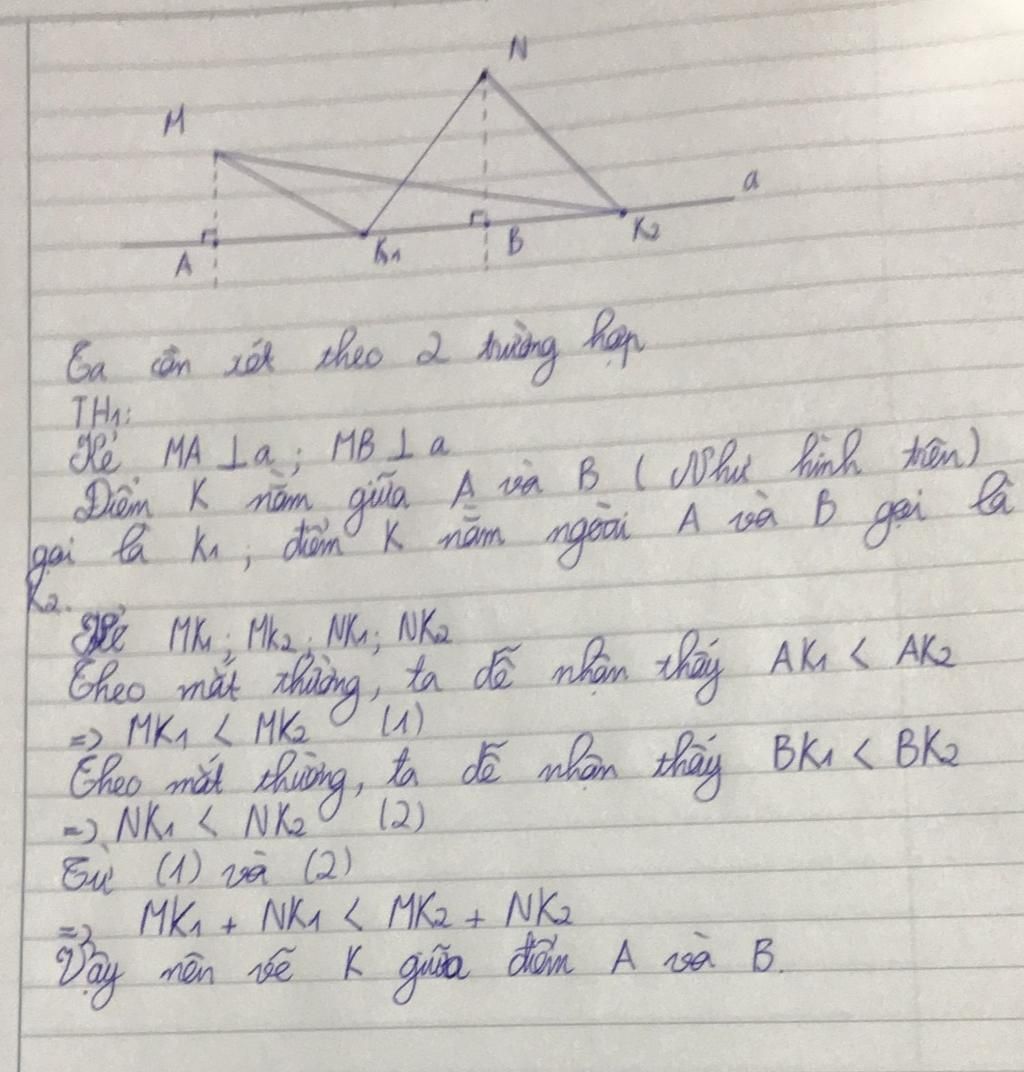 N
M
a
A
K1
B
K2
Ta cần xét theo 2 trường hợp
TH1:
Kẻ MA ⊥ a ; MB ⊥ a
Điểm K nằm giữa A và B ( Như hình trên)
gọi là K1 ; điểm K nằm ngoài A và B gọi là
K2.
Kẻ MK1 ; MK2 ; NK1 ; NK2
Theo mắt thường, ta dễ nhận thấy AK1 < AK2
=> MK1 < MK2 (1)
Theo mắt thường, ta dễ nhận thấy BK1 < BK2
=> NK1 < NK2 (2)
Từ (1) và (2)
=> MK1 + NK1 < MK2 + NK2
Vậy nên vẽ K giữa điểm A và B.